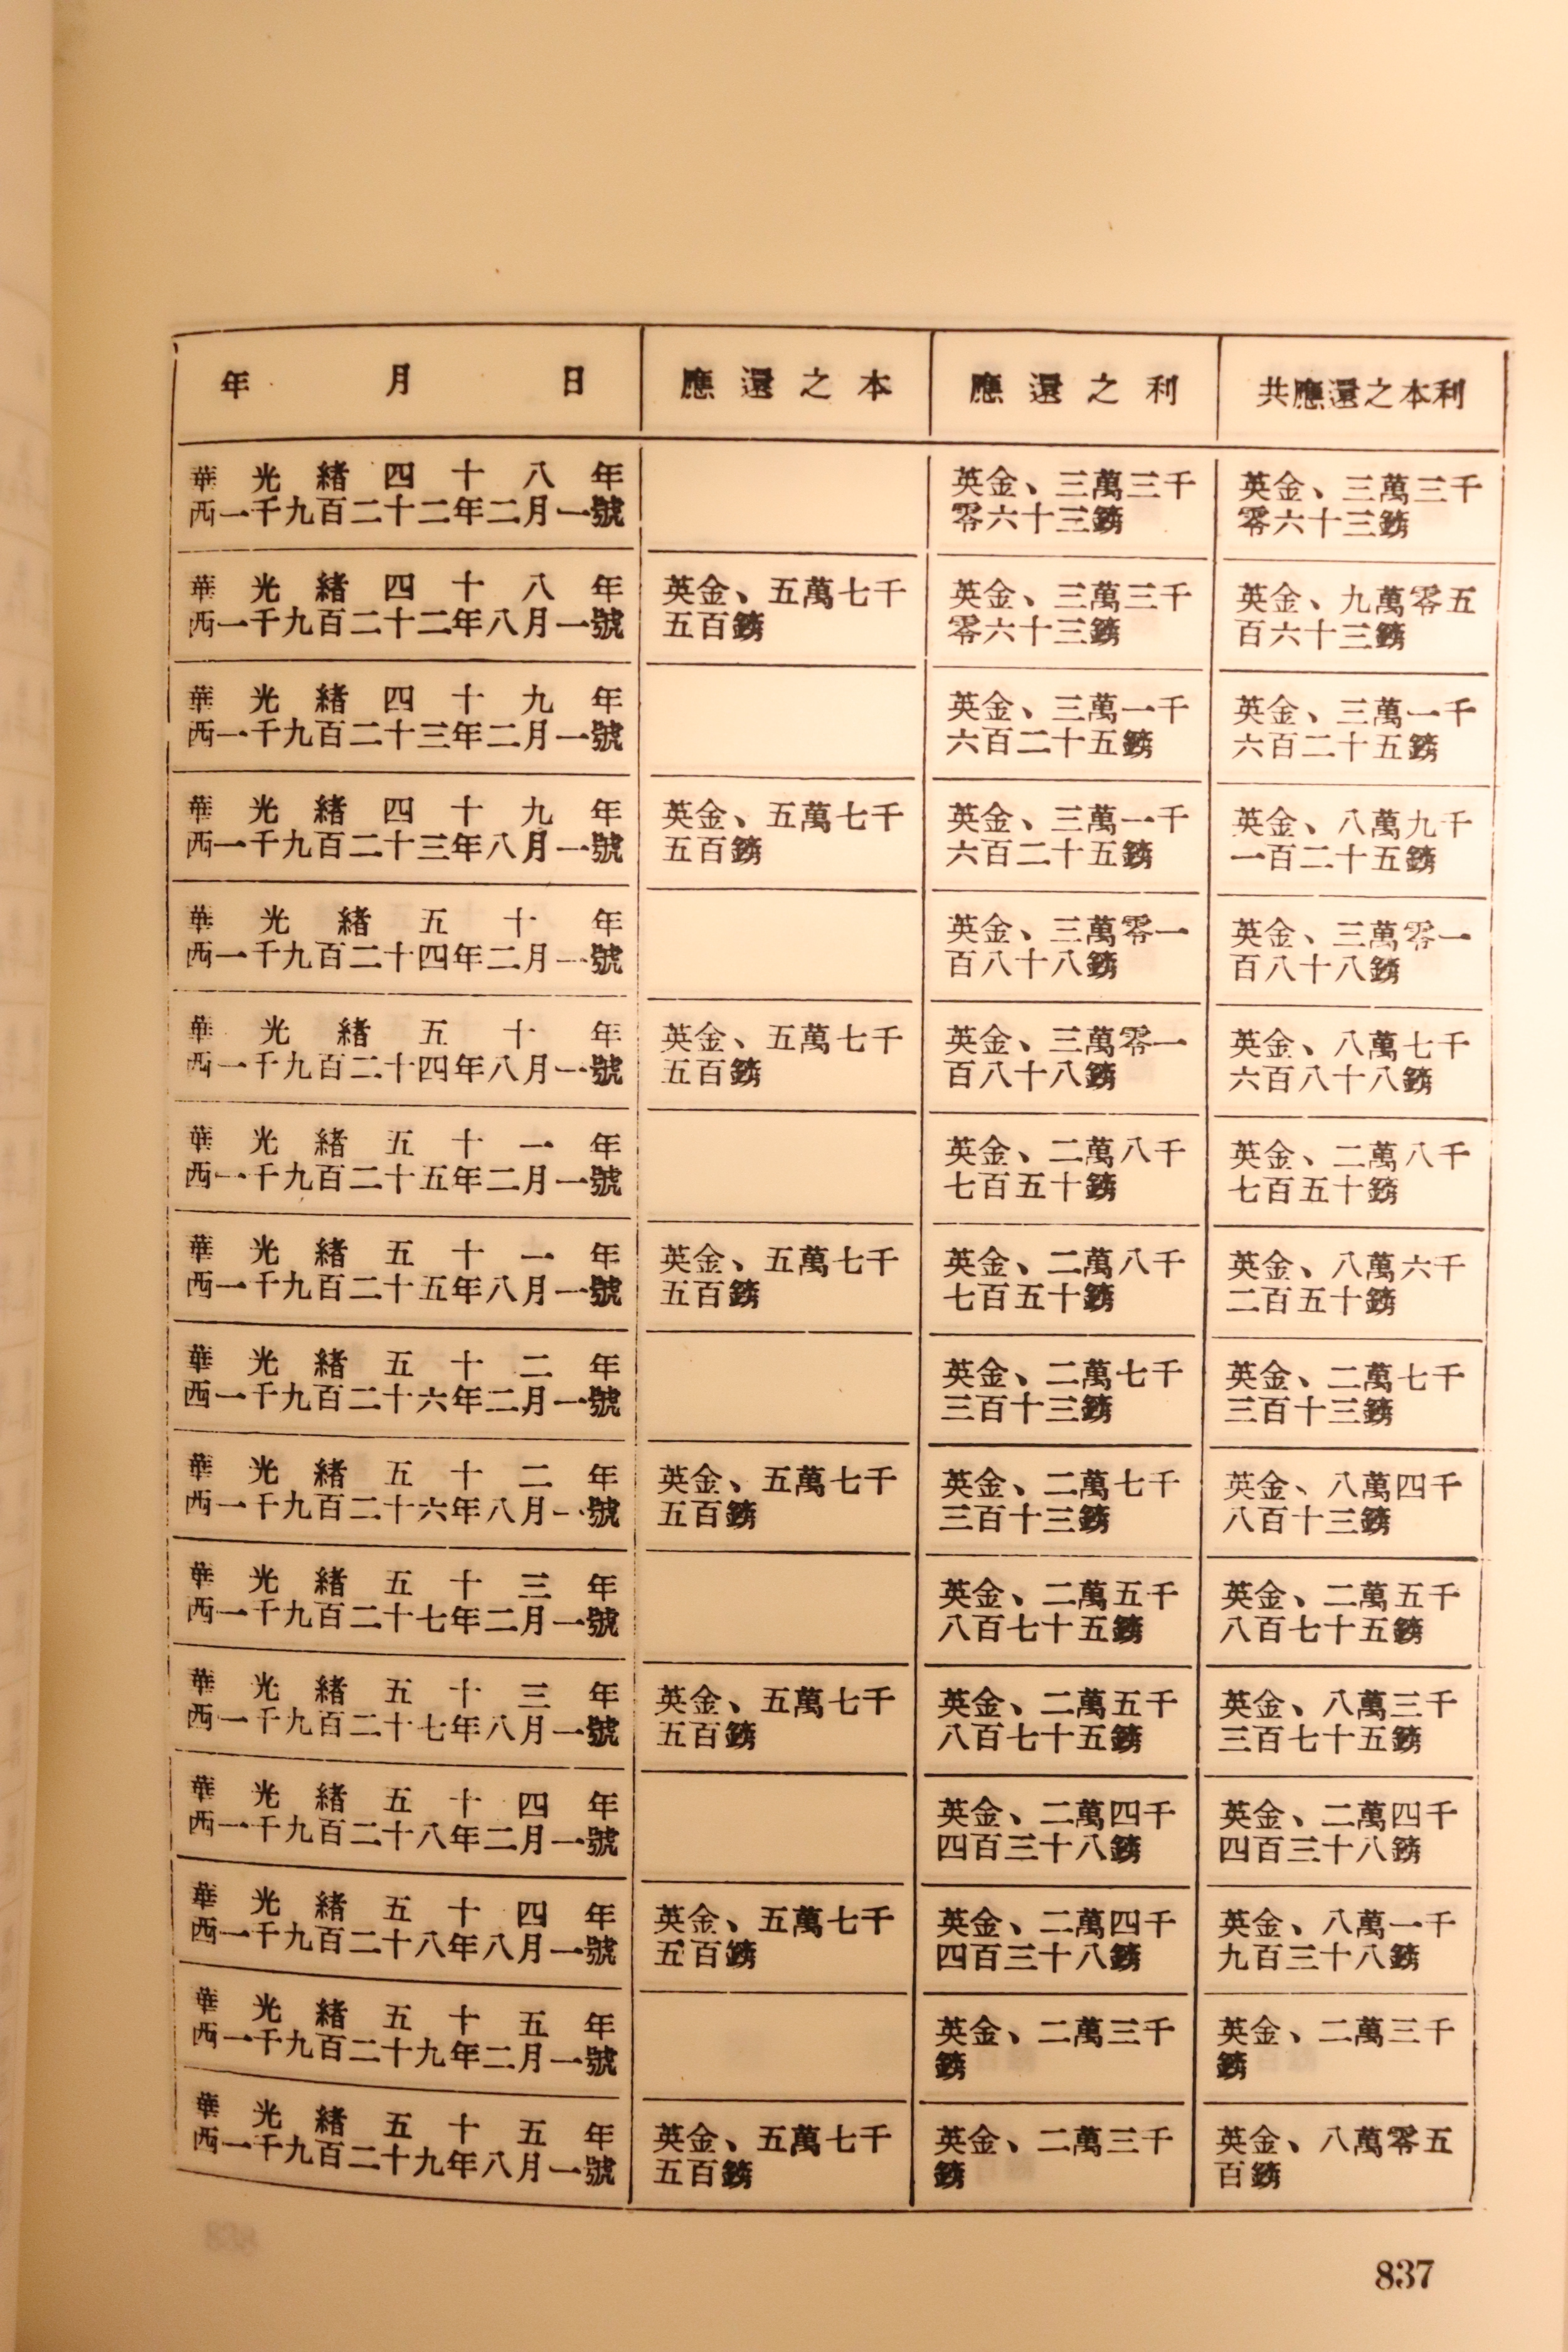 年月日 應還之本 應還之利 共應還之本利
華光緒四十八年
西一千九百二十二年二月一號
英金、三萬三千
零六十三鎊
英金、三萬三千
零六十三鎊
華光緒四十八年
西一千九百二十二年八月一號
英金、五萬七千
五百鎊
英金、三萬三千
零六十三鎊
英金、九萬零五
百六十三鎊
華光緒四十九年
西一千九百二十三年二月一號
英金、三萬一千
六百二十五鎊
英金、三萬一千
六百二十五鎊
華光緒四十九年
西一千九百二十三年八月一號
英金、五萬七千
五百鎊
英金、三萬一千
六百二十五鎊
英金、八萬九千
一百二十五鎊
華光緒五十年
西一千九百二十四年二月一號
英金、三萬零一
百八十八鎊
英金、三萬零一
百八十八鎊
華光緒五十年
西一千九百二十四年八月一號
英金、五萬七千
五百鎊
英金、三萬零一
百八十八鎊
英金、八萬七千
六百八十八鎊
華光緒五十一年
西一千九百二十五年二月一號
英金、二萬八千
七百五十鎊
英金、二萬八千
七百五十鎊
華光緒五十一年
西一千九百二十五年八月一號
英金、五萬七千
五百鎊
英金、二萬八千
七百五十鎊
英金、八萬六千
二百五十鎊
華光緒五十二年
西一千九百二十六年二月一號
英金、二萬七千
三百十三鎊
英金、二萬七千
三百十三鎊
華光緒五十二年
西一千九百二十六年八月一號
英金、五萬七千
五百鎊
英金、二萬七千
三百十三鎊
英金、八萬四千
八百十三鎊
華光緒五十三年
西一千九百二十七年二月一號
英金、二萬五千
八百七十五鎊
英金、二萬五千
八百七十五鎊
華光緒五十三年
西一千九百二十七年八月一號
英金、五萬七千
五百鎊
英金、二萬五千
八百七十五鎊
英金、八萬三千
三百七十五鎊
華光緒五十四年
西一千九百二十八年二月一號
英金、二萬四千
四百三十八鎊
英金、二萬四千
四百三十八鎊
華光緒五十四年
西一千九百二十八年八月一號
英金、五萬七千
五百鎊
英金、二萬四千
四百三十八鎊
英金、八萬一千
九百三十八鎊
華光緒五十五年
西一千九百二十九年二月一號
英金、二萬三千
鎊
英金、二萬三千
鎊
華光緒五十五年
西一千九百二十九年八月一號
英金、五萬七千
五百鎊
英金、二萬三千
鎊
英金、八萬零五
百鎊
837